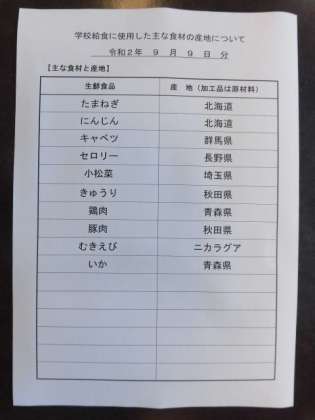 学校給食に使用した主な食材の産地について
令和2年 9月 9日 分
【主な食材と産地】
生鮮食品 産 地（加工品は原材料）
たまねぎ 北海道
にんじん 北海道
キャベツ 群馬県
セロリー 長野県
小松菜 埼玉県
きゅうり 秋田県
鶏肉 青森県
豚肉 秋田県
むきえび ニカラグア
いか 青森県